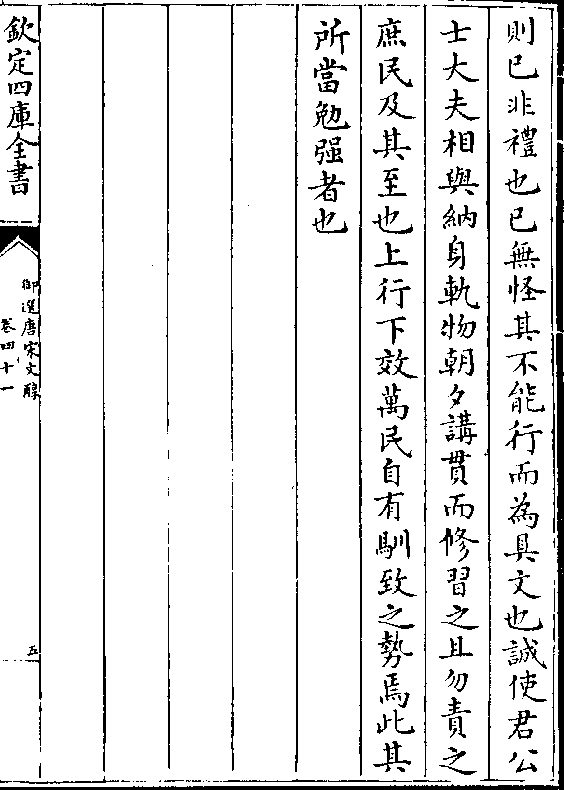 則已非禮也已無怪其不能行而為具文也誠使君公
士大夫相與納身軌物朝夕講貫而修習之且勿責之
庶民及其至也上行下效萬民自有馴致之勢焉此其
所當勉强者也
欽定四庫全書
御選唐宋文醇
卷四十一
五